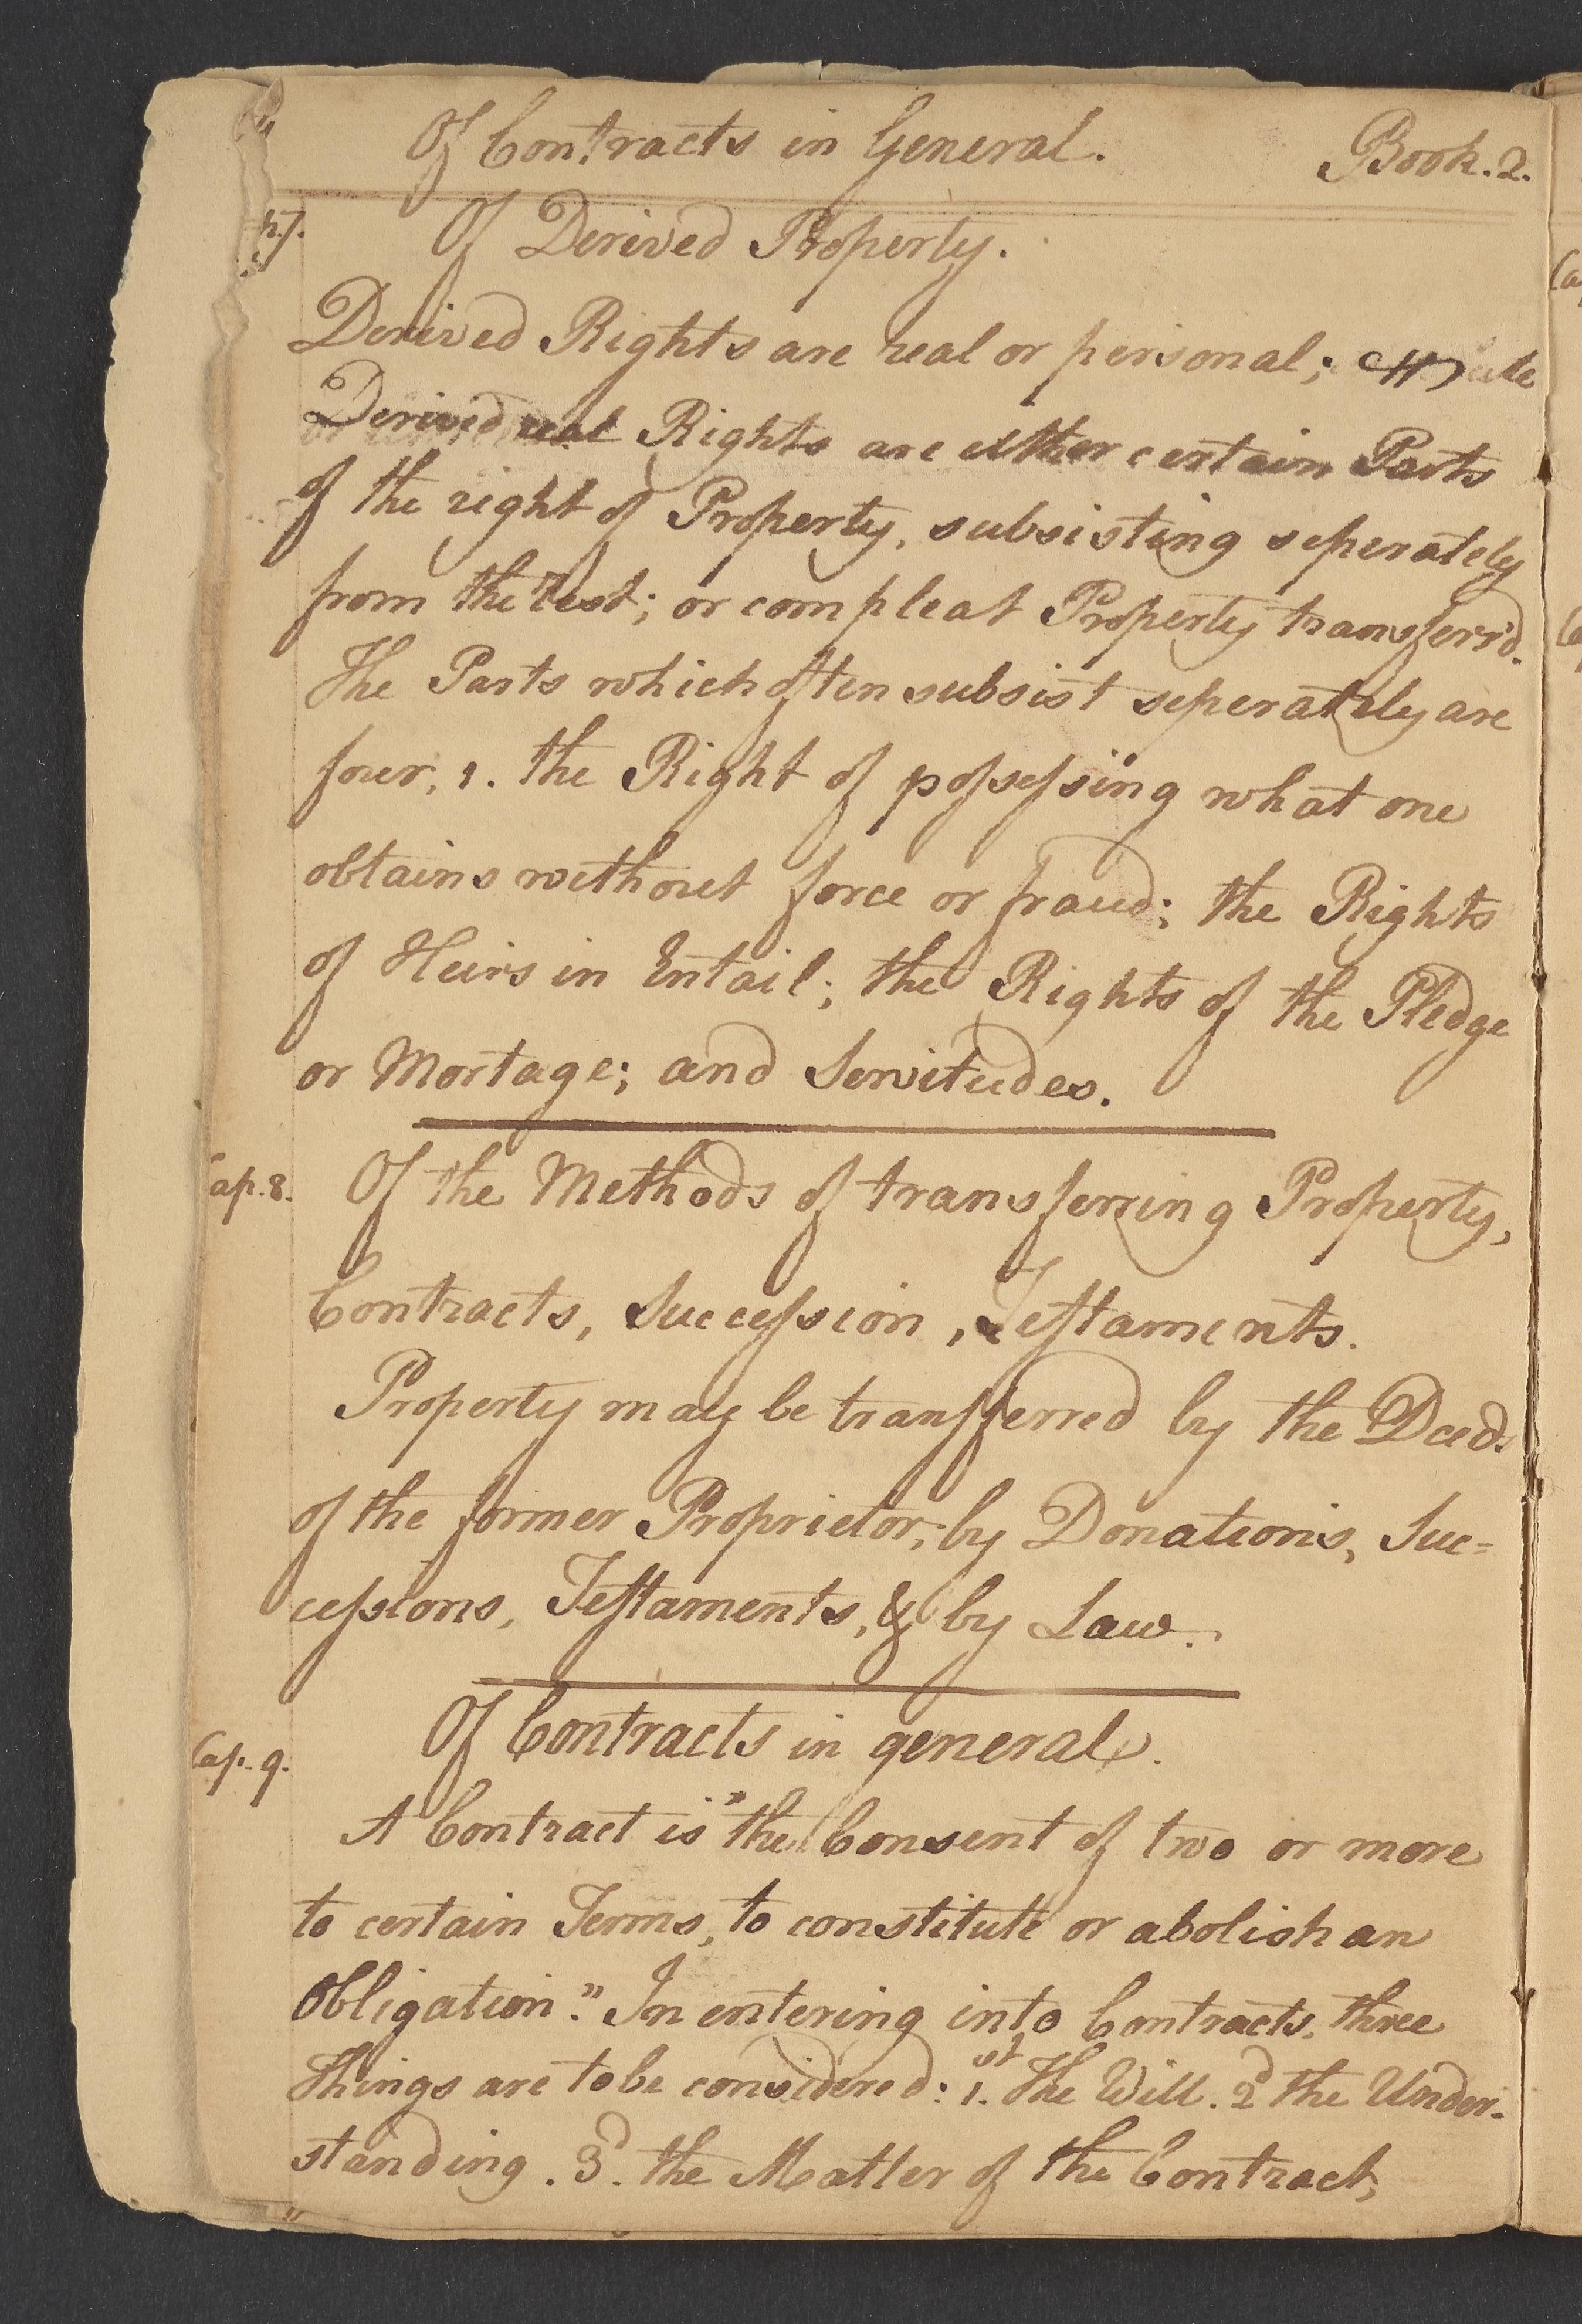 Of Contracts in General. Book. 2.
p. 7. Of Derived Property.
Derived Rights are real or personal;
Derived real Rights are either certain Parts
of the right of Property, subsisting seperately
from the rest; or compleat Property transferr'd.
The Parts which often subsist seperately are
four, 1. the Right of possessing what one
obtains without force or fraud; the Rights
of Heirs in Entail; the Rights of the Pledge
or Mortage; and Servitudes.
Cap. 8. Of the Methods of transferring Property,
Contracts, Succession, Testaments.
Property may be transferred by the Deeds
of the former Proprietor, by Donations, Suc=
cessions, Testaments, & by Law.
Cap. 9. Of Contracts in general.
A Contract is "the Consent of two or more
to certain Terms, to constitute or abolish an
Obligation." In entering into Contracts, three
Things are to be considered: 1.st The Will. 2d the Under-
standing. 3d. the Matter of the Contract;
Ca